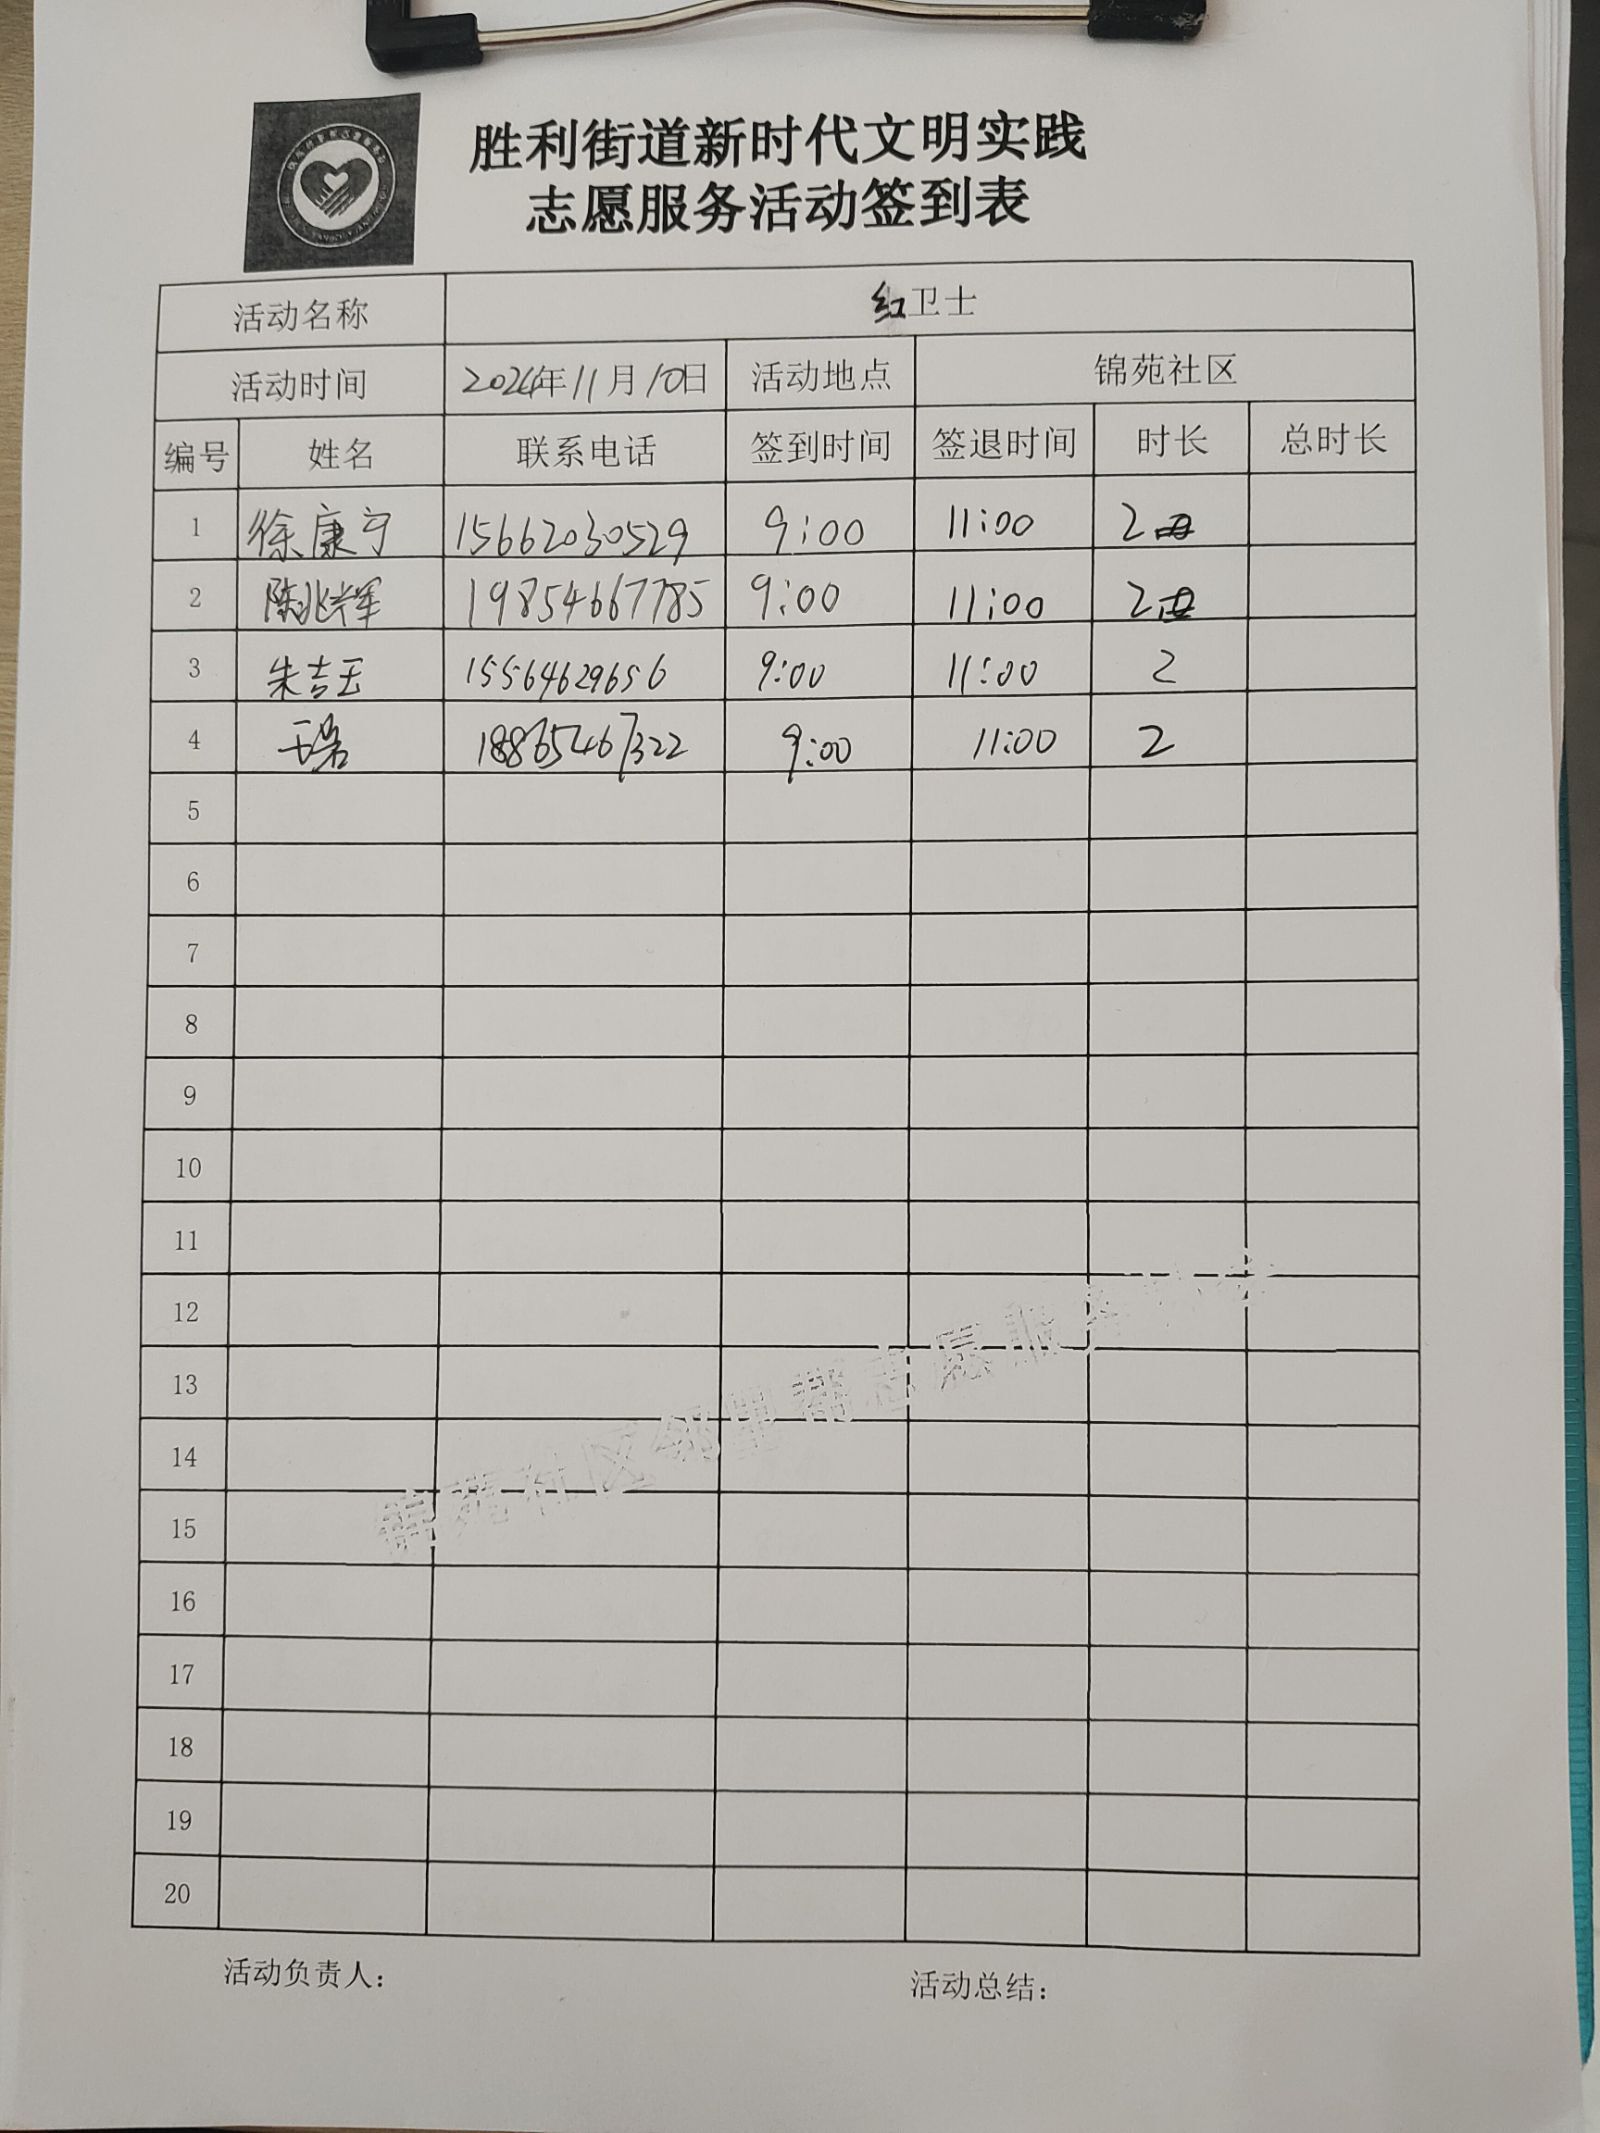 胜利街道新时代文明实践
志愿服务活动签到表
活动名称 红卫士
活动时间 2024年11月10日 活动地点 锦苑社区
编号 姓名 联系电话 签到时间 签退时间 时长 总时长
1 徐康宁 15662030529 9:00 11:00 2
2 陈兆辉 19854667785 9:00 11:00 2
3 朱吉玉 15564629656 9:00 11:00 2
4 18865467322 9:00 11:00 2
5
6
7
8
9
10
11
12
13
14
15
16
17
18
19
20
锦苑社区邻里帮志愿服务
活动负责人：
活动总结：